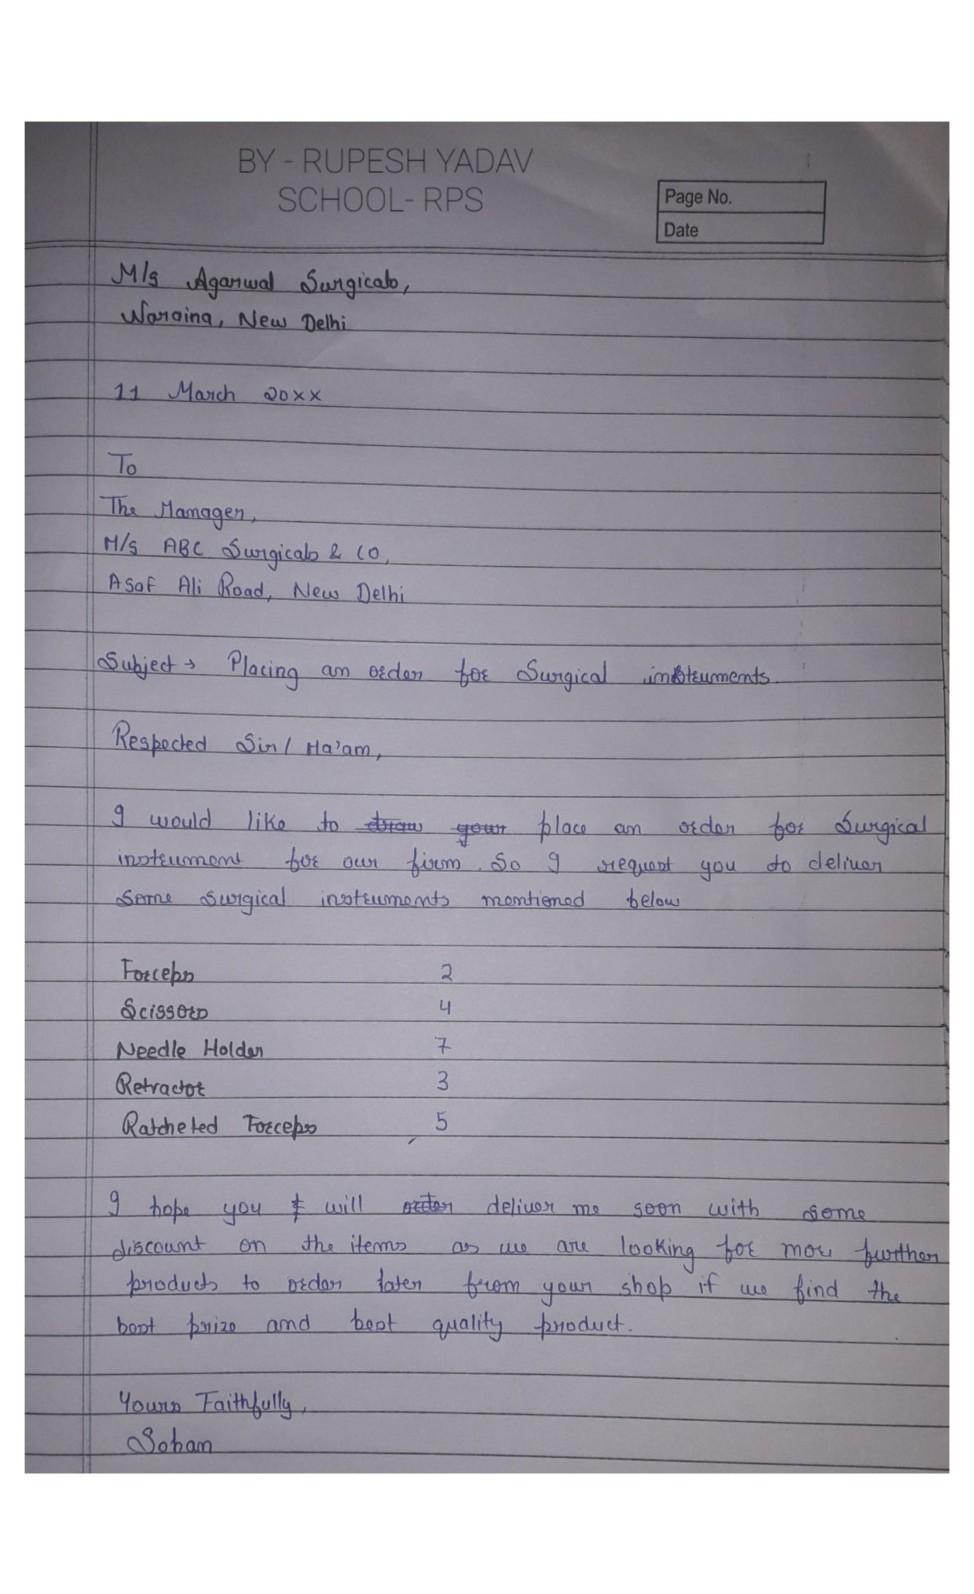 BY - RUPESH YADAV
SCHOOL- RPS
Page No.
Date
M/s Agarwal Surgicals,
Naraina, New Delhi
11 March 20xx
To
The Manager,
M/s ABC Surgicals & CO,
Asaf Ali Road, New Delhi
Subject → Placing an order for Surgical instruments
Respected Sir/ Ma'am,
I would like to draw your place an order for Surgical
instrument for our firm. So I request you to deliver
some surgical instruments mentioned below
Forceps 2
Scissors 4
Needle Holder 7
Retractor 3
Ratcheted Forceps 5
I hope you will order deliver me soon with some
discount on the items as we are looking for more further
products to order later from your shop if we find the
best prize and best quality product.
Yours Faithfully,
Soham